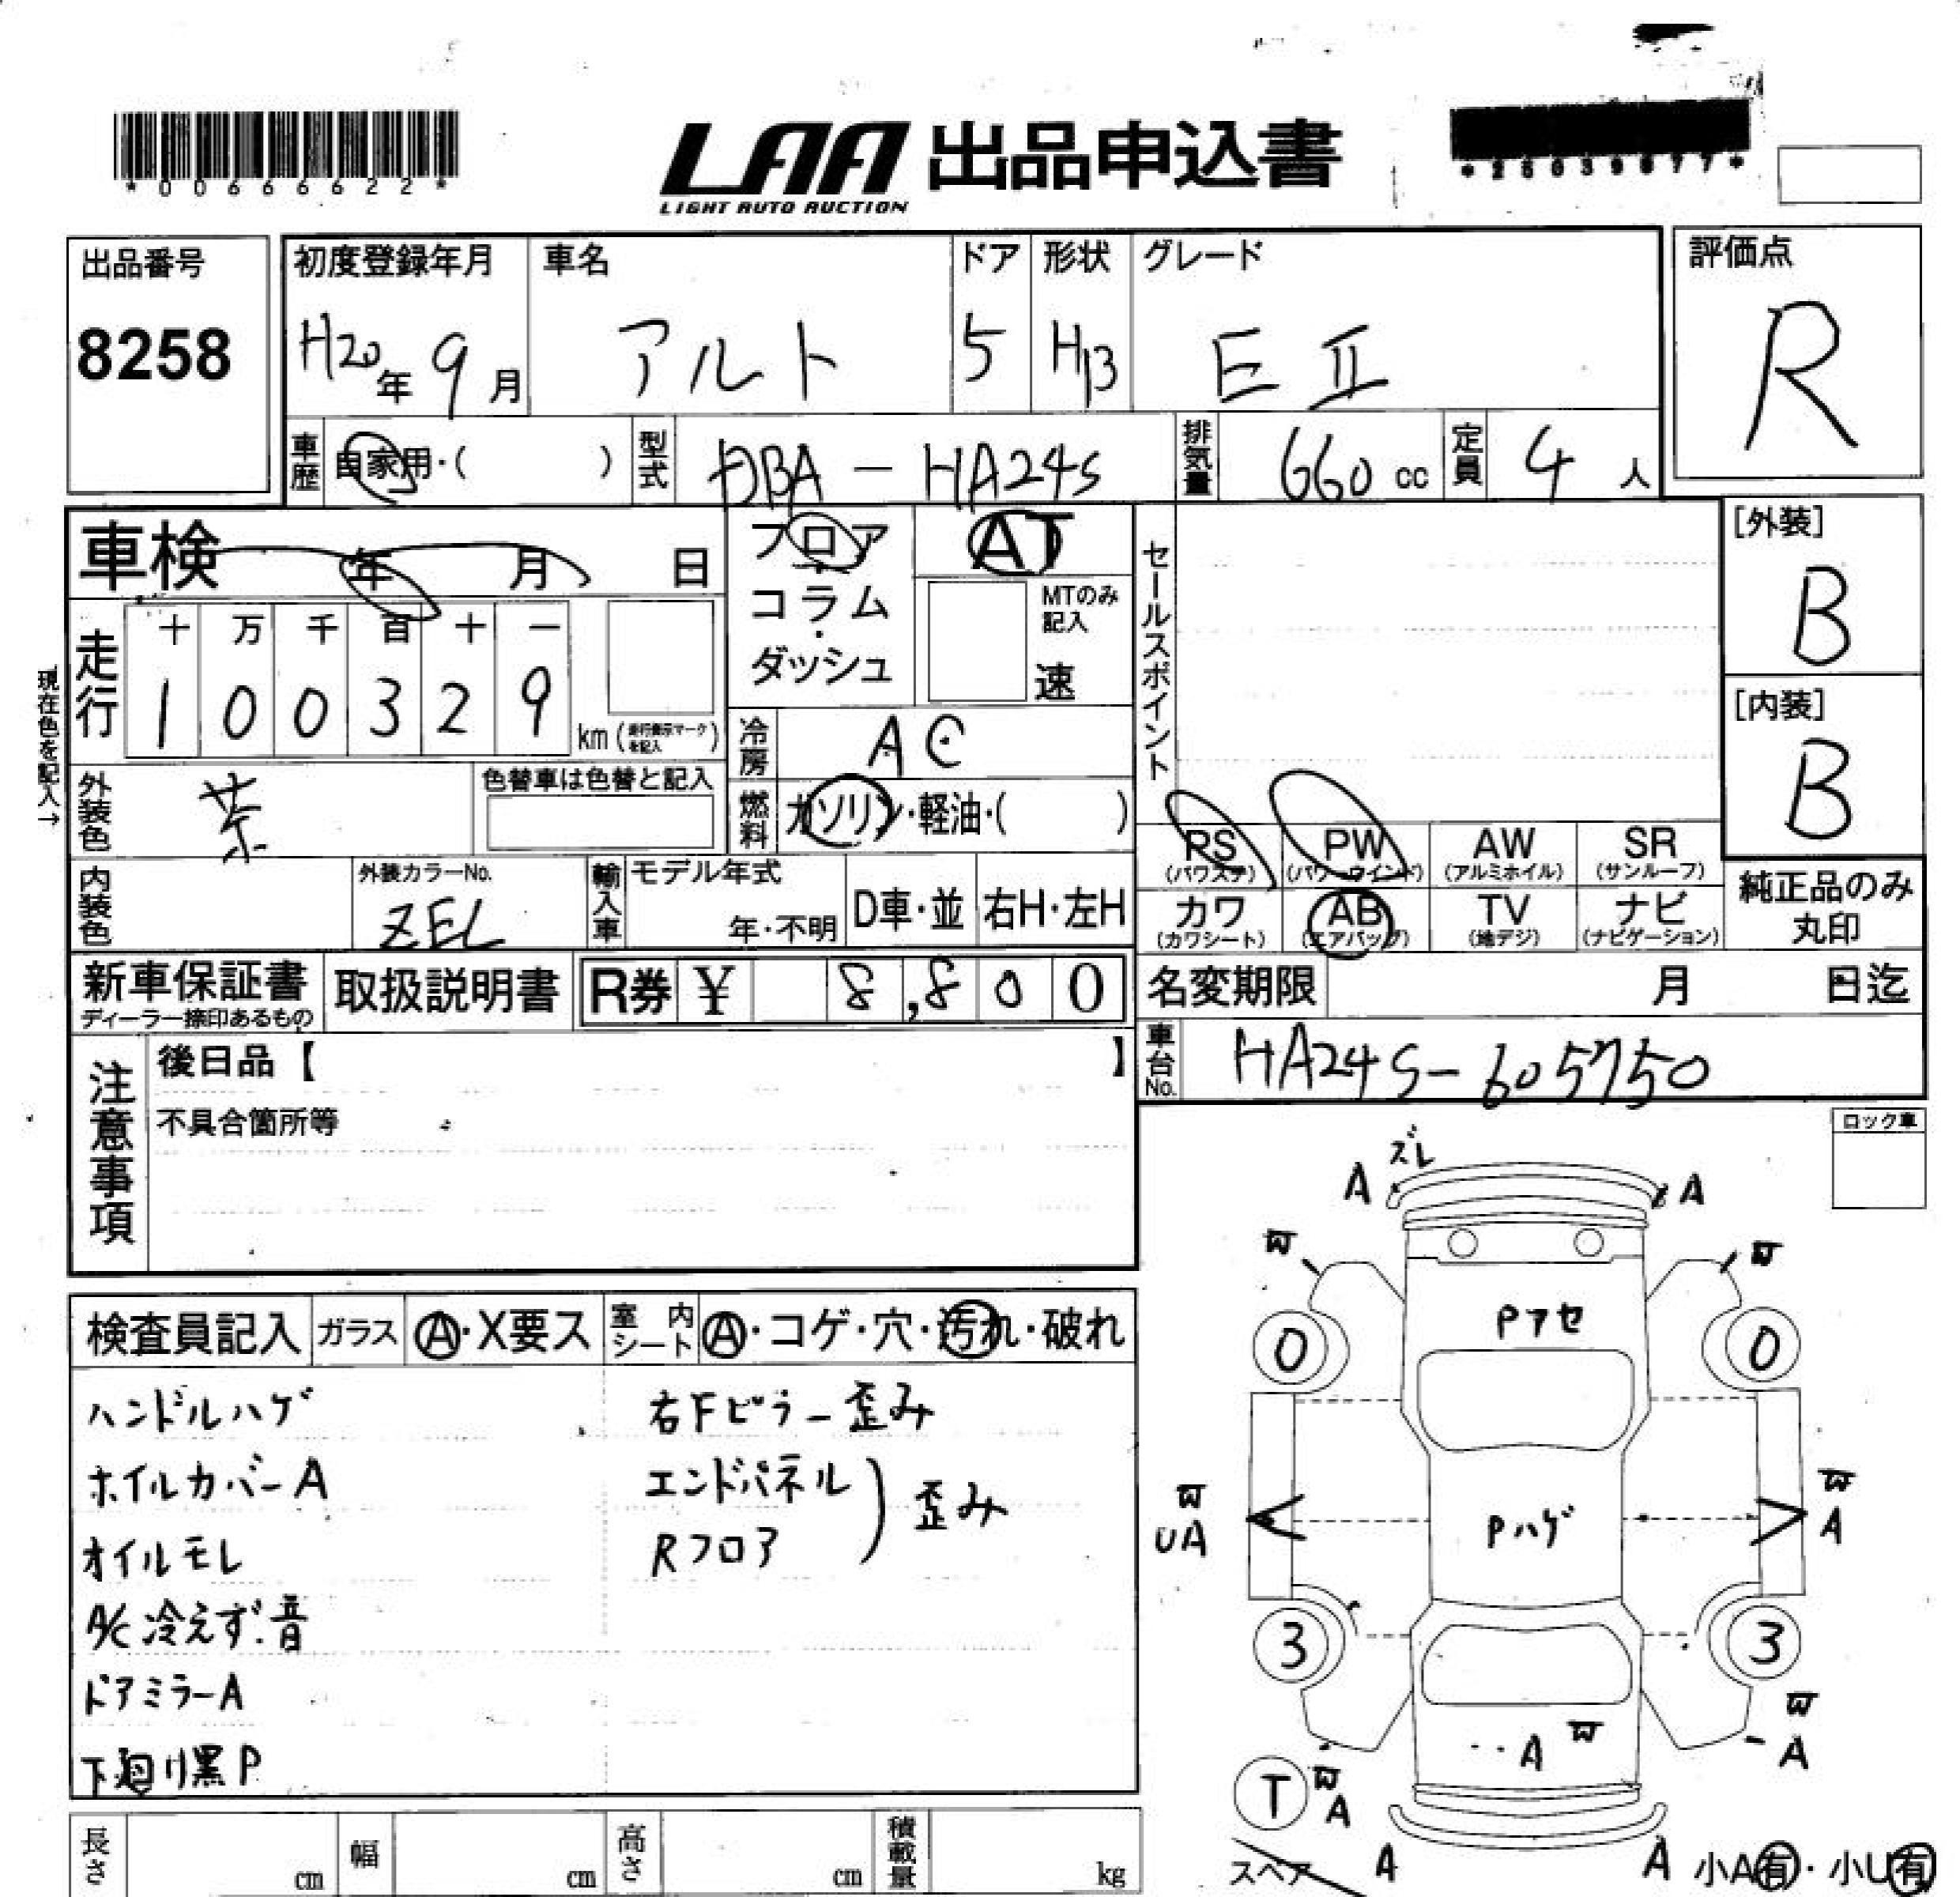 *00666622*
LAA 出品申込書
LIGHT AUTO AUCTION
出品番号
8258
初度登録年月
H20年 9月
車名
アルト
ドア
5
形状
HB
グレード
E II
評価点
R
車歴 自家用・( )
型式 DBA - HA24S
排気量 660 cc
定員 4 人
車検 年 月 日
走行
十 万 千 百 十 一
1 0 0 3 2 9
km (走行表示マークを記入)
現在色を記入→
フロア・
コラム・
ダッシュ
AT
MTのみ記入
速
冷房 AC
燃料 ガソリン・軽油・( )
セールスポイント
[外装]
B
[内装]
B
外装色 茶
色替車は色替と記入
内装色
外装カラーNo.
ZEL
輸入車
モデル年式
年・不明
D車・並
右H・左H
PS (パワステ)
PW (パワーウインド)
AW (アルミホイル)
SR (サンルーフ)
カワ (カワシート)
AB (エアバッグ)
TV (地デジ)
ナビ (ナビゲーション)
純正品のみ
丸印
新車保証書
ディーラー捺印あるもの
取扱説明書
R券 ¥ 8,800
名変期限 月 日迄
車台No. HA24S-605750
注意事項
後日品【 】
不具合箇所等
ロック車
検査員記入
ガラス Ⓐ・X要ス
室内シート Ⓐ・コゲ・穴・汚れ・破れ
ハンドルハゲ
ホイルカバーA
オイルモレ
A/C冷えず.音
ドアミラーA
下廻り黒P
右Fピラー歪み
エンドパネル
Rフロア
歪み
ズレ
A
A
W
W
Pアセ
0
0
W
UA
Pハゲ
W
A
3
3
W
A
A W
T
W
A
スペア
A
A
小A有・小U有
長さ cm
幅 cm
高さ cm
積載量 kg